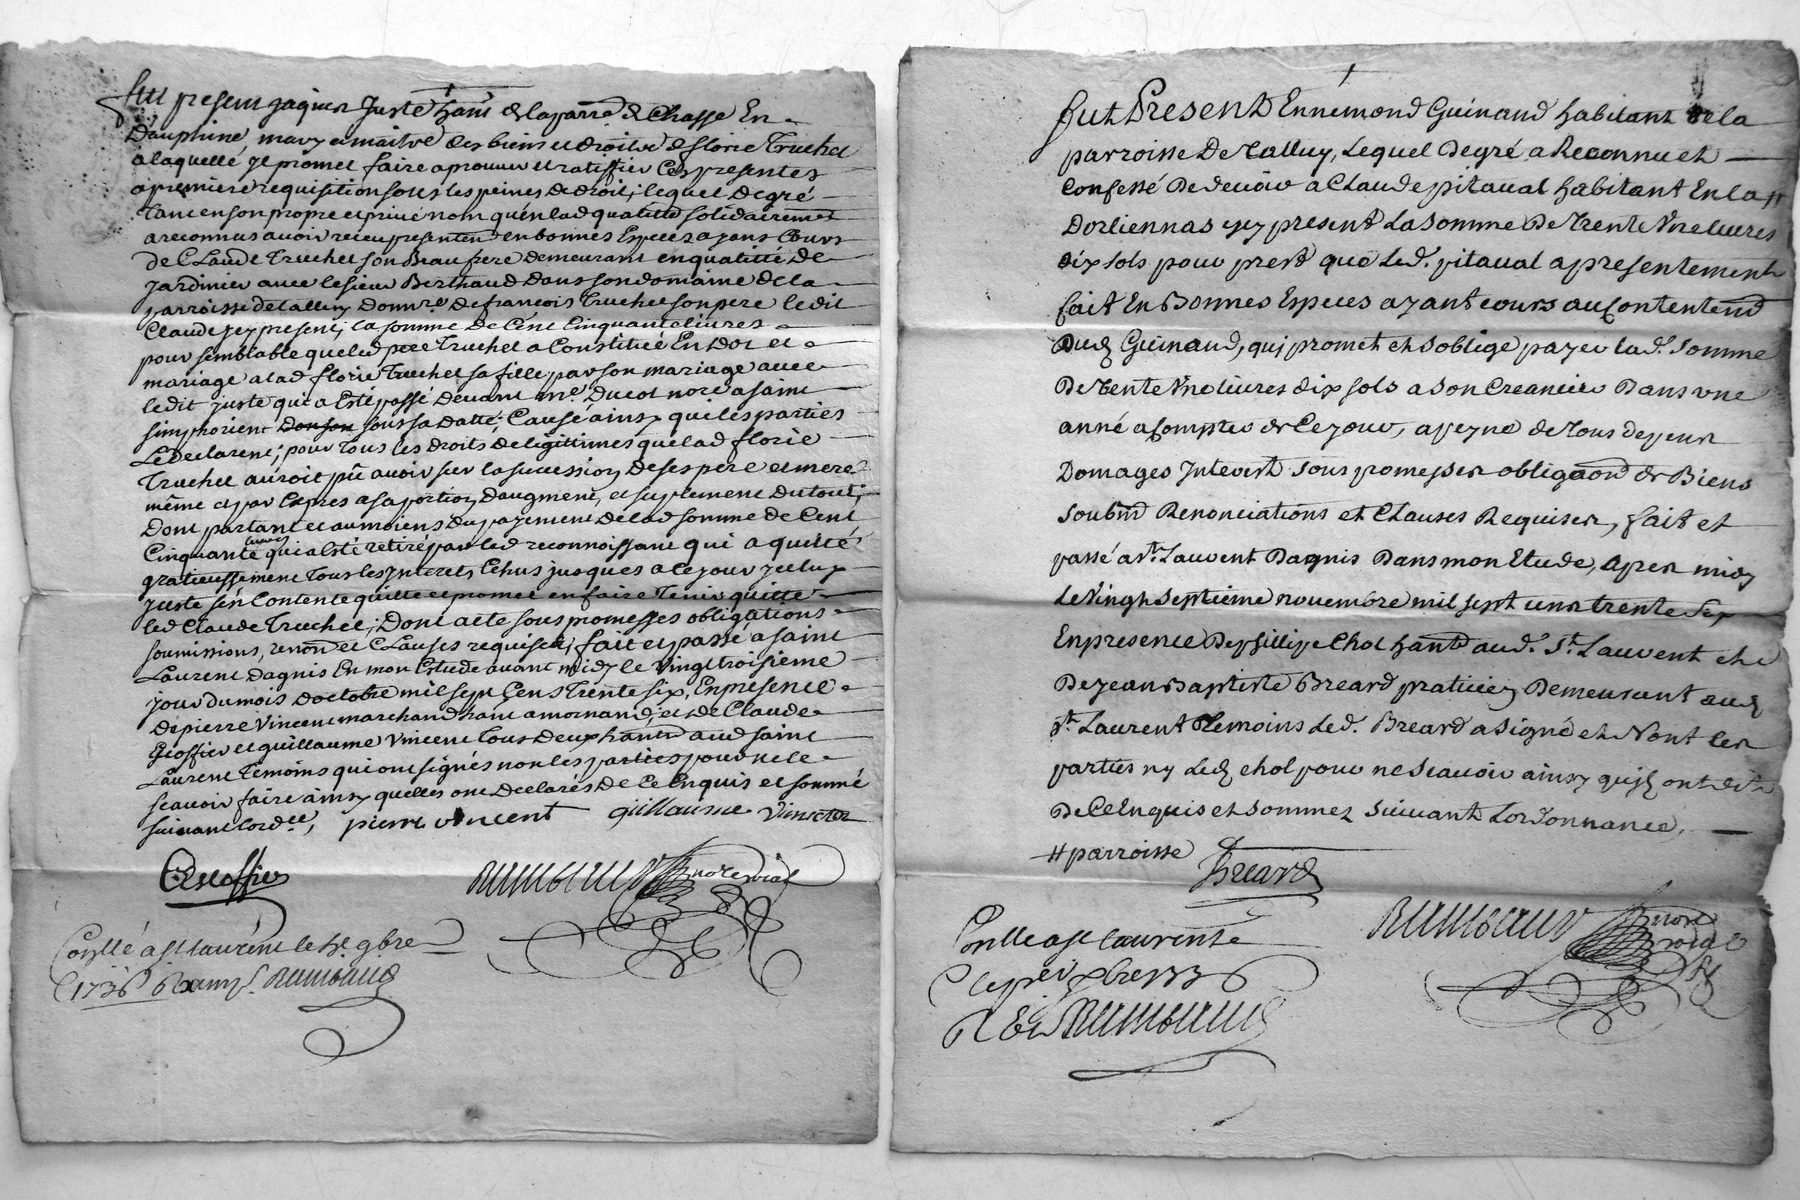 fut present jaques Juste hant de la parre de Chasse En
Dauphine, mary et maitre des biens et droits de florie Truchet
a laquelle jl promet faire aprouver et ratiffier Ces presentes
a premiere requisition sous les peines de droit; lequel de gré
tant en son propre et privé nom qu'en lad qualitté solidairement
a reconnus avoir receu presentent en bonnes Especes ayans Cours
de Claude Truchet son Beau frere demeurant en qualitté de
jardinier avec le sieur Berthaud dans son domaine de la
parroisse de tallury Donnre de francois Truchet son pere le dit
Claude jcy present; la somme de Cent Cinquante livres
pour semblable que led pere Truchet a Constitué En Dot et
mariage a lad florie Truchet sa fille par son mariage avec
ledit juste qui a Esté passé devant me. Ducot nore a saint
simphorient Donson sous sa datte; Causé ainsy que les parties
Le declarent; pour tous les droits de legittimes que lad florie
Truchet auroit pû avoir sur la succession de ses pere et mere
même et par Expres a sa portion d'augment, et suplement du tout;
Dont partant et au moiens du payement de lad somme de Cent
Cinquante livres qui a Esté retiré par led reconnoissant qui a quitté
gratieussement tous les Jnterets Echus jusques a Ce jour jceluy
juste s'en Contente quitte et promet en faire tenir quitte
led Claude Truchet; Dont acte sous promesses obligations
soumissions, renon et Clauses requises; fait et passé a saint
Laurent dagnis En mon Estude avant midy le Vingt troisieme
jour du mois doctobre mil sept Cens Trente six, En presence
de pierre Vincent marchand hant a mornand; et de Claude
Geoffier et guillaume Vincent tous deux hants aud saint
Laurent Temoins qui ont signés non les parties pour ne le
scavoir faire ainsy quelles ont declarés de Ce Enquis et sommé
suivant lordce, pierre vincent guillaume Vincent
nore roial
Conllé a st laurent le 9bre
1736
fut Present Ennemond Guinand habitant de la
parroisse De talluy, Lequel De gré a Reconnu et
Confessé De devoir a Claude pitaval habitant En la #
Dorliennas jcy present La somme De trente Vne livres
dix sols pour prest que Led. pitaval a presentement
fait En Bonnes Especes ayant cours au Contentend
Dud Guinand, qui promet et s'oblige payer lad. somme
De trente Vne livres dix sols a son Creancier Dans une
anné a Compter de Ce jour, a peyne de tous depens
Domages Jnterest sous promesses obligaond de Biens
soubmd Renonciations et Clauses Requises, fait et
passé a st. Lauvent Dagnis Dans mon Etude, apres midy
le Vingt septieme novembre mil sept cens trente Six
En presence De phillipe Chol hantd aud. St. Lauvent et
De jean Baptiste Breard praticien Demeurant aud
st. Laurent temoins Led. Breard a signé et Nont les
parties ny Led chol pour ne scavoir ainsy quils ont dit
De Ce Enquis et Sommez Suivant Lordonnance.
# parroisse Breard
nore roial
Conlle a st laurent